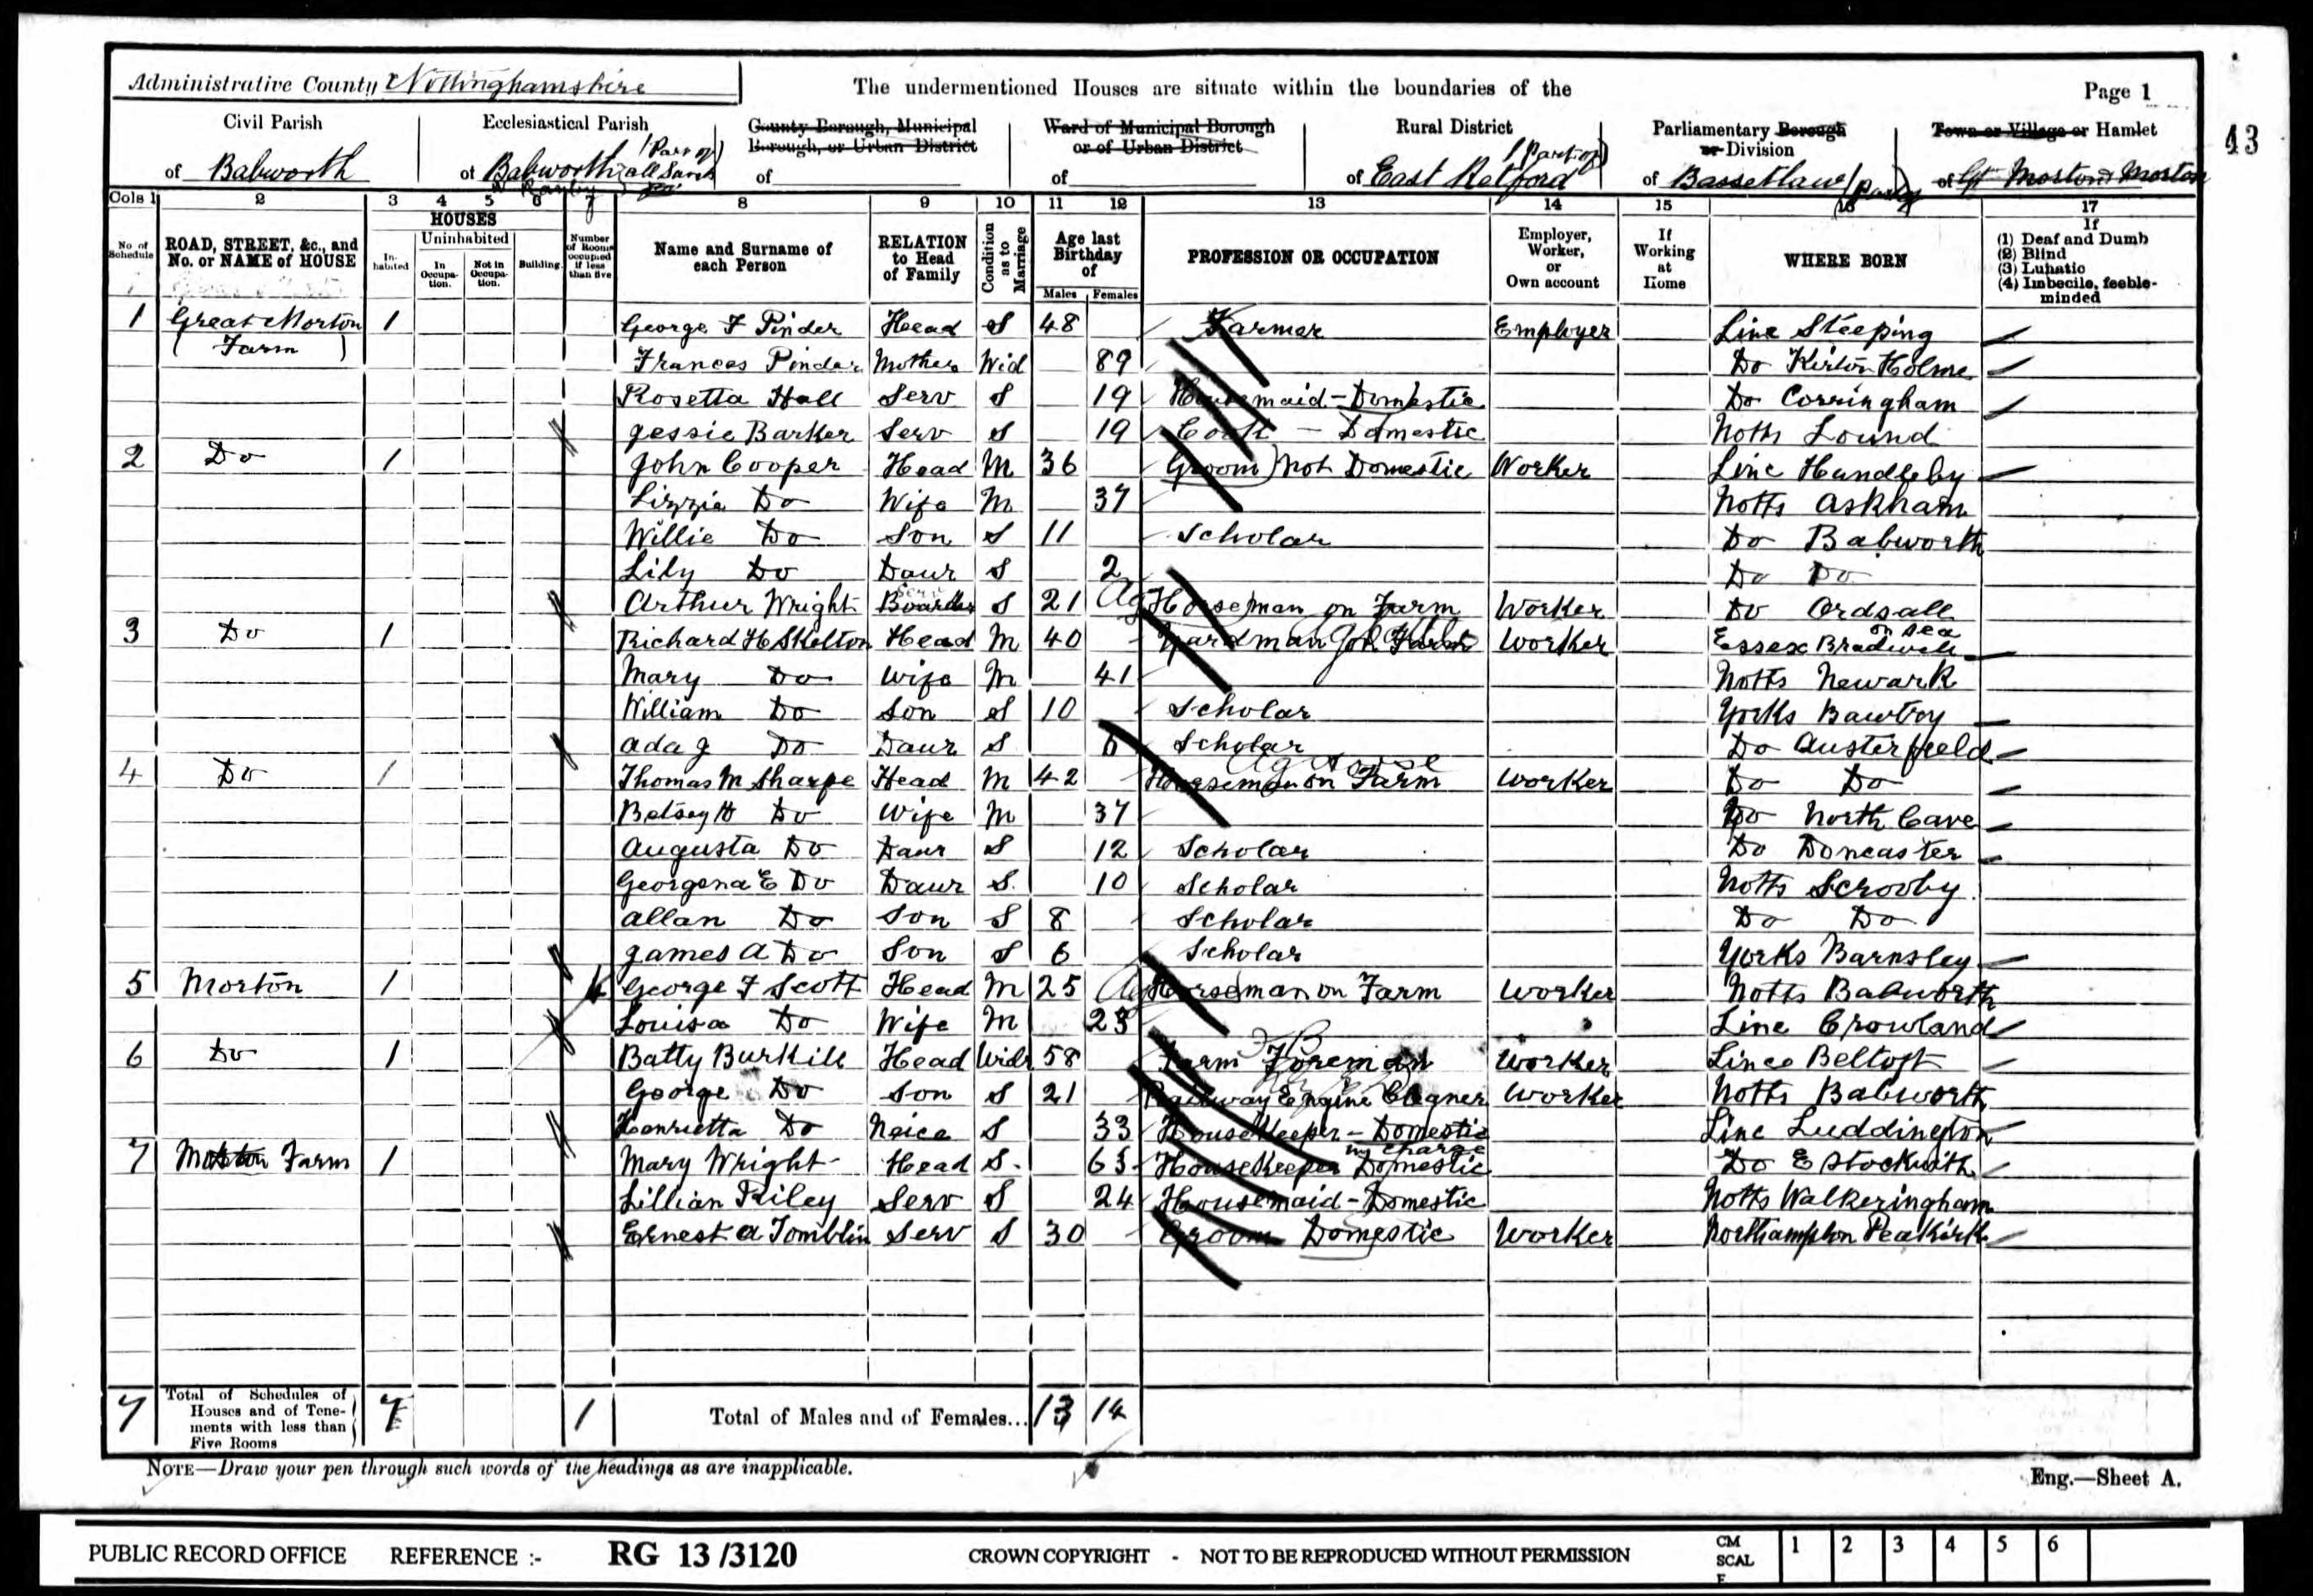 Administrative County Nottinghamshire
The undermentioned Houses are situate within the boundaries of the
Page 1
43
Civil Parish of Babworth
Ecclesiastical Parish of Babworth (Part of) all Saints
County Borough, Municipal Borough, or Urban District of
Ward of Municipal Borough or of Urban District of
Rural District of East Retford (Part of)
Parliamentary Borough or Division of Bassetlaw (Part of)
Town or Village or Hamlet of Gt Morton Morton
Cols 1 2 3 4 5 6 7 8 9 10 11 12 13 14 15 16 17
No of Schedule
ROAD, STREET, &c., and No. or NAME of HOUSE
HOUSES
Inhabited
Uninhabited
In Occupation.
Not in Occupation.
Building.
Number of Rooms occupied if less than five
Name and Surname of each Person
RELATION to Head of Family
Condition as to Marriage
Age last Birthday of
Males Females
PROFESSION OR OCCUPATION
Employer, Worker, or Own account
If Working at Home
WHERE BORN
If (1) Deaf and Dumb (2) Blind (3) Lunatic (4) Imbecile, feeble-minded
1 Great Morton (Farm) 1 George F Pinder Head S 48 Farmer Employer Linc Steeping
Frances Pinder Mother Wid 89 Do Kirton Holme
Rosetta Hall Serv S 19 Housemaid - Domestic Do Corringham
Jessie Barker Serv S 19 Cook - Domestic Notts Lound
2 Do 1 John Cooper Head M 36 Groom) Not Domestic Worker Linc Hundleby
Lizzie Do Wife M 37 Notts Askham
Willie Do Son S 11 Scholar Do Babworth
Lily Do Daur S 2 Do Do
Arthur Wright Boarder Serv S 21 Ag Horseman on Farm Worker Do Ordsall
3 Do 1 Richard H Skelton Head M 40 Yardman on Farm Worker Essex Bradwell on Sea
Mary Do Wife M 41 Notts Newark
William Do Son S 10 Scholar Yorks Bawtry
Ada J Do Daur S 6 Scholar Do Austerfield
4 Do 1 Thomas M Sharpe Head M 42 Horseman on Farm Ag Horse Worker Do Do
Betsey H Do Wife M 37 Do North Cave
Augusta Do Daur S 12 Scholar Do Doncaster
Georgena E Do Daur S 10 Scholar Notts Scrooby
Allan Do Son S 8 Scholar Do Do
James A Do Son S 6 Scholar Yorks Barnsley
5 Morton 1 4 George F Scott Head M 25 Ag Horseman on Farm Worker Notts Babworth
Louisa Do Wife M 23 Linc Crowland
6 Do 1 Batty Burkill Head Widr 58 Farm Foreman Worker Lincs Beltoft
George Do Son S 21 Railway Engine Cleaner Worker Notts Babworth
Henrietta Do Neice S 33 Housekeeper - Domestic Linc Luddington
7 Morton Farm 1 Mary Wright Head S 65 Housekeeper in charge Domestic Do E Stockwith
Lillian Riley Serv S 24 Housemaid - Domestic Notts Walkeringham
Ernest A Tomblin Serv S 30 Groom Domestic Worker Northampton Peakirk
7 Total of Schedules of Houses and of Tenements with less than Five Rooms 7 1 Total of Males and of Females... 13 14
NOTE—Draw your pen through such words of the headings as are inapplicable.
Eng.—Sheet A.
PUBLIC RECORD OFFICE REFERENCE :- RG 13 /3120 CROWN COPYRIGHT - NOT TO BE REPRODUCED WITHOUT PERMISSION
CM SCALE 1 2 3 4 5 6